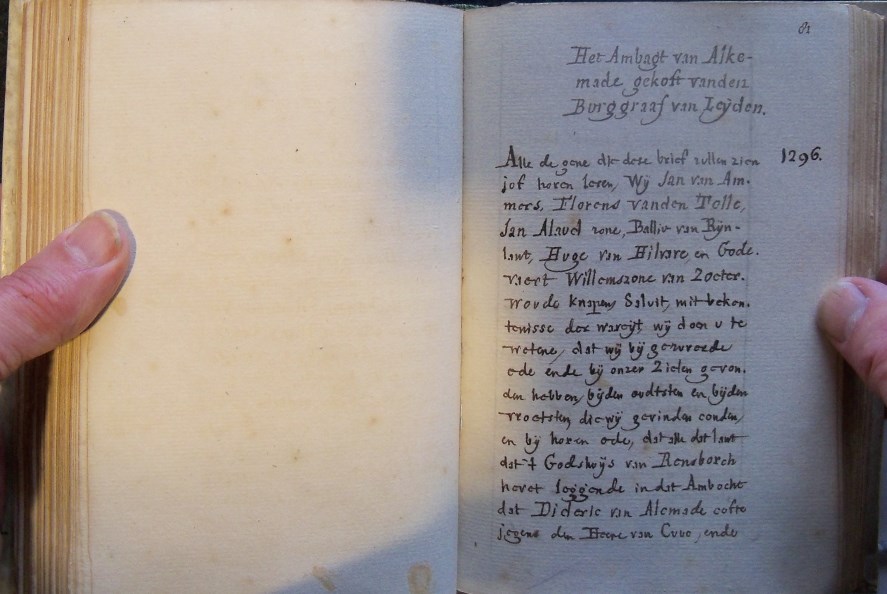 81
Het Ambagt van Alke-
made gekoft vanden
Burggraaf van Leÿden.
Alle de gene die dese brief zullen zien 1296.
jof horen lesen, Wÿ Jan van Am-
mers, Florens vanden Tolle,
Jan Alauel zone, Balliu van Rÿn-
lant, Huge van Hilvare, en Gode-
vaert Willemszone van Zoeter-
woude knapen, Saluit, mit beken-
tenisse der wareÿt wÿ doen u te
wetene, dat wÿ bÿ gezwoerde
ede ende bÿ onzer Zielen gevon-
den hebben, bÿden oudtsten en bÿden
vroetsten, die wÿ gevinden conden,
en bÿ horen ede, dat alle dat lant
dat 't Godshuÿs van Rensborch
hevet leggende in dat Ambocht
dat Dideric van Alcmade cofte
jegens den Heere van Cuuc, ende